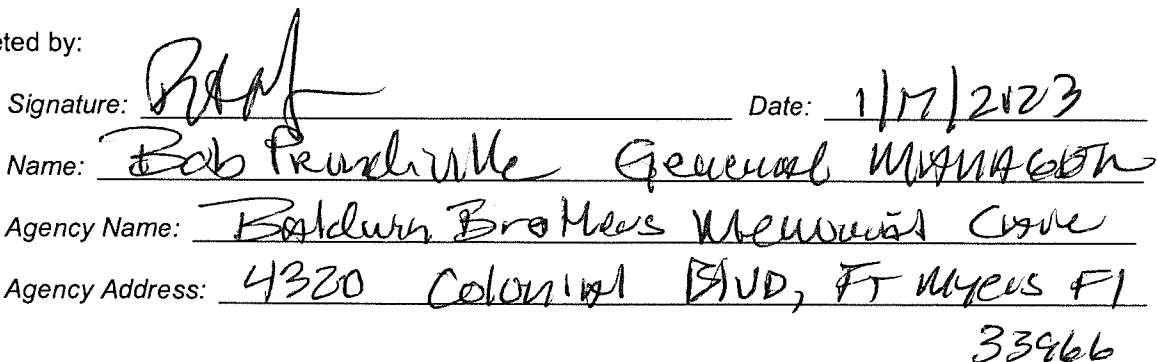 eted by:
Signature: Date: 1/17/2023
Name: Bob General MANAGER
Agency Name: Baldwin Brothers Memorial Care
Agency Address: 4320 Colonial Blvd, FT Myers Fl
33966